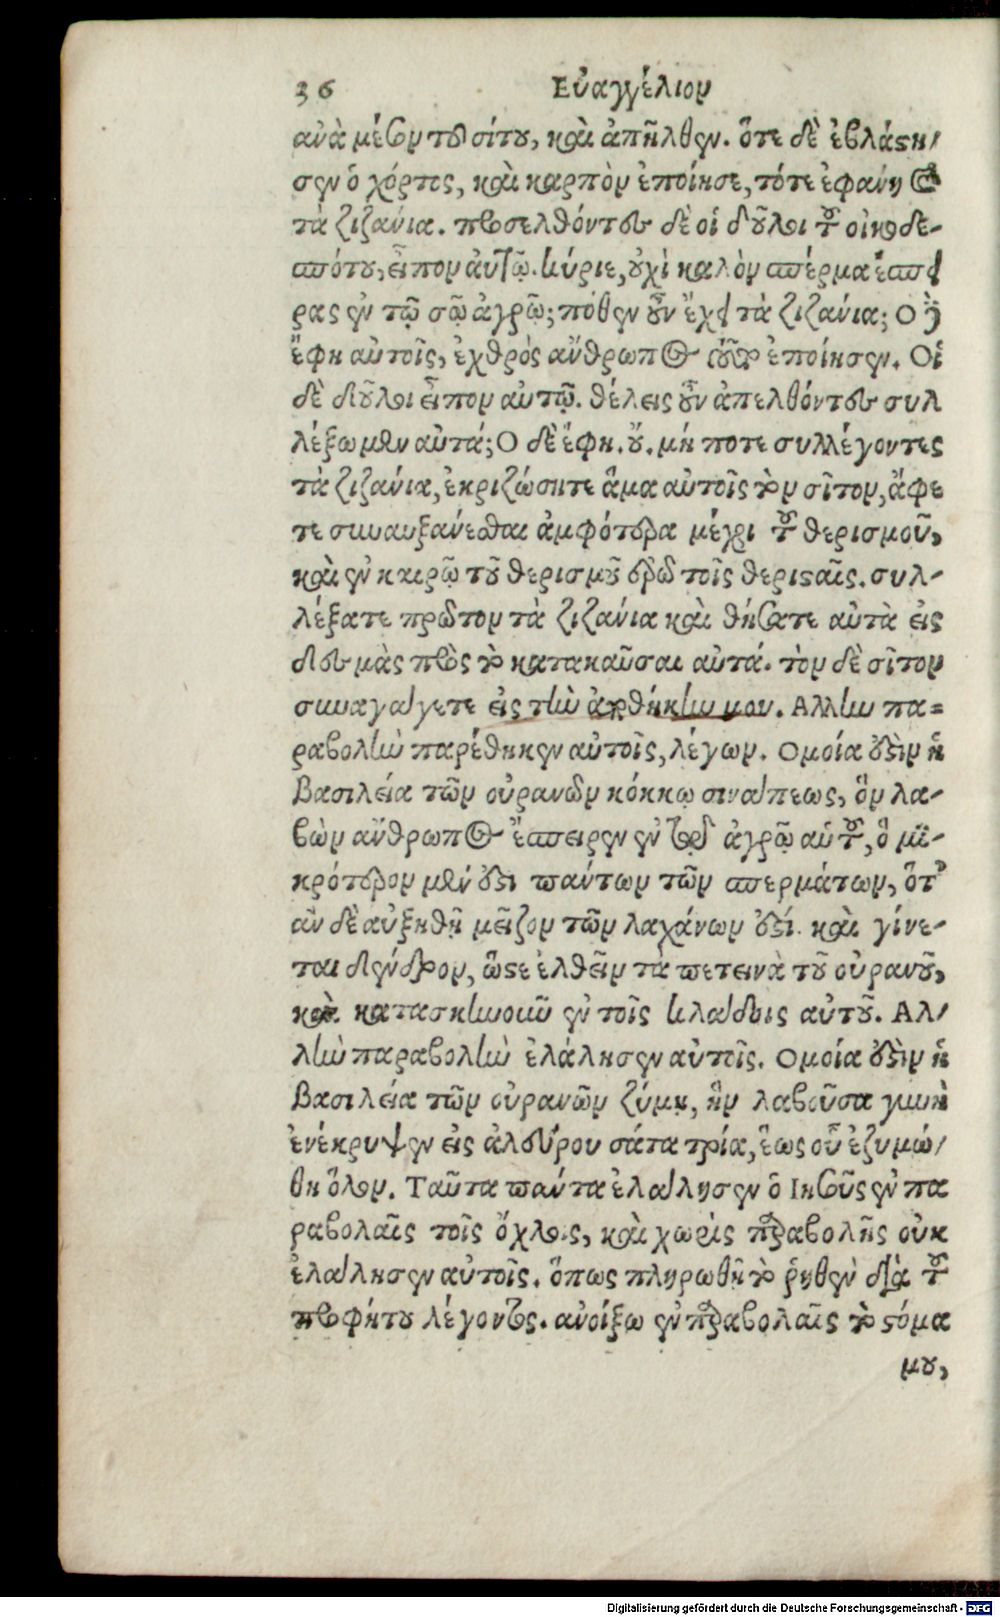 36 Εὐαγγέλιον
ἀνὰ μέσον τοῦ σίτου, καὶ ἀπῆλθεν. ὅτε δὲ ἐβλάστη/
σεν ὁ χόρτος, καὶ καρπὸν ἐποίησε, τότε ἐφάνη καὶ
τὰ ζιζάνια. προσελθόντες δὲ οἱ δοῦλοι τοῦ οἰκοδε-
σπότου, εἶπον αὐτῷ. κύριε, οὐχὶ καλὸν σπέρμα ἔσπει
ρας ἐν τῷ σῷ ἀγρῷ; πόθεν οὖν ἔχει τὰ ζιζάνια; Ο δὲ
ἔφη αὐτοῖς, ἐχθρὸς ἄνθρωπος τοῦτο ἐποίησεν. Οἱ
δὲ δοῦλοι εἶπον αὐτῷ. θέλεις οὖν ἀπελθόντες συλ
λέξωμεν αὐτά; Ο δὲ ἔφη. οὔ. μή ποτε συλλέγοντες
τὰ ζιζάνια, ἐκριζώσητε ἅμα αὐτοῖς τὸν σῖτον, ἄφε
τε συναυξάνεσθαι ἀμφότερα μέχρι τοῦ θερισμοῦ,
καὶ ἐν καιρῷ τοῦ θερισμοῦ ἐρῶ τοῖς θερισταῖς. συλ-
λέξατε πρῶτον τὰ ζιζάνια καὶ δήσατε αὐτὰ εἰς
δεσμὰς πρὸς τὸ κατακαῦσαι αὐτά. τὸν δὲ σῖτον
συναγάγετε εἰς τὴν ἀποθήκην μου. Αλλην πα=
ραβολὴν παρέθηκεν αὐτοῖς, λέγων. Ομοία ἐστὶν ἡ
βασιλεία τῶν οὐρανῶν κόκκῳ σινάπεως, ὃν λα-
βὼν ἄνθρωπος ἔσπειρεν ἐν τῷ ἀγρῷ αὑτοῦ, ὃ μι-
κρότερον μέν ἐστι πάντων τῶν σπερμάτων, ὅτ'
ἂν δὲ αὐξηθῇ μεῖζον τῶν λαχάνων ἐστί. καὶ γίνε-
ται δένδρον, ὥστε ἐλθεῖν τὰ πετεινὰ τοῦ οὐρανοῦ,
καὶ κατασκηνοῦν ἐν τοῖς κλάδοις αὐτοῦ. Αλ/
λὴν παραβολὴν ἐλάλησεν αὐτοῖς. Ομοία ἐστὶν ἡ
βασιλεία τῶν οὐρανῶν ζύμῃ, ἣν λαβοῦσα γυνὴ
ἐνέκρυψεν εἰς ἀλεύρου σάτα τρία, ἕως οὗ ἐζυμώ/
θη ὅλον. Ταῦτα πάντα ἐλάλησεν ὁ Ιησοῦς ἐν πα
ραβολαῖς τοῖς ὄχλοις, καὶ χωρὶς παραβολῆς οὐκ
ἐλάλησεν αὐτοῖς. ὅπως πληρωθῇ τὸ ῥηθὲν διὰ τοῦ
προφήτου λέγοντος. ἀνοίξω ἐν παραβολαῖς τὸ στόμα
μου,
Digitalisierung gefördert durch die Deutsche Forschungsgemeinschaft - DFG